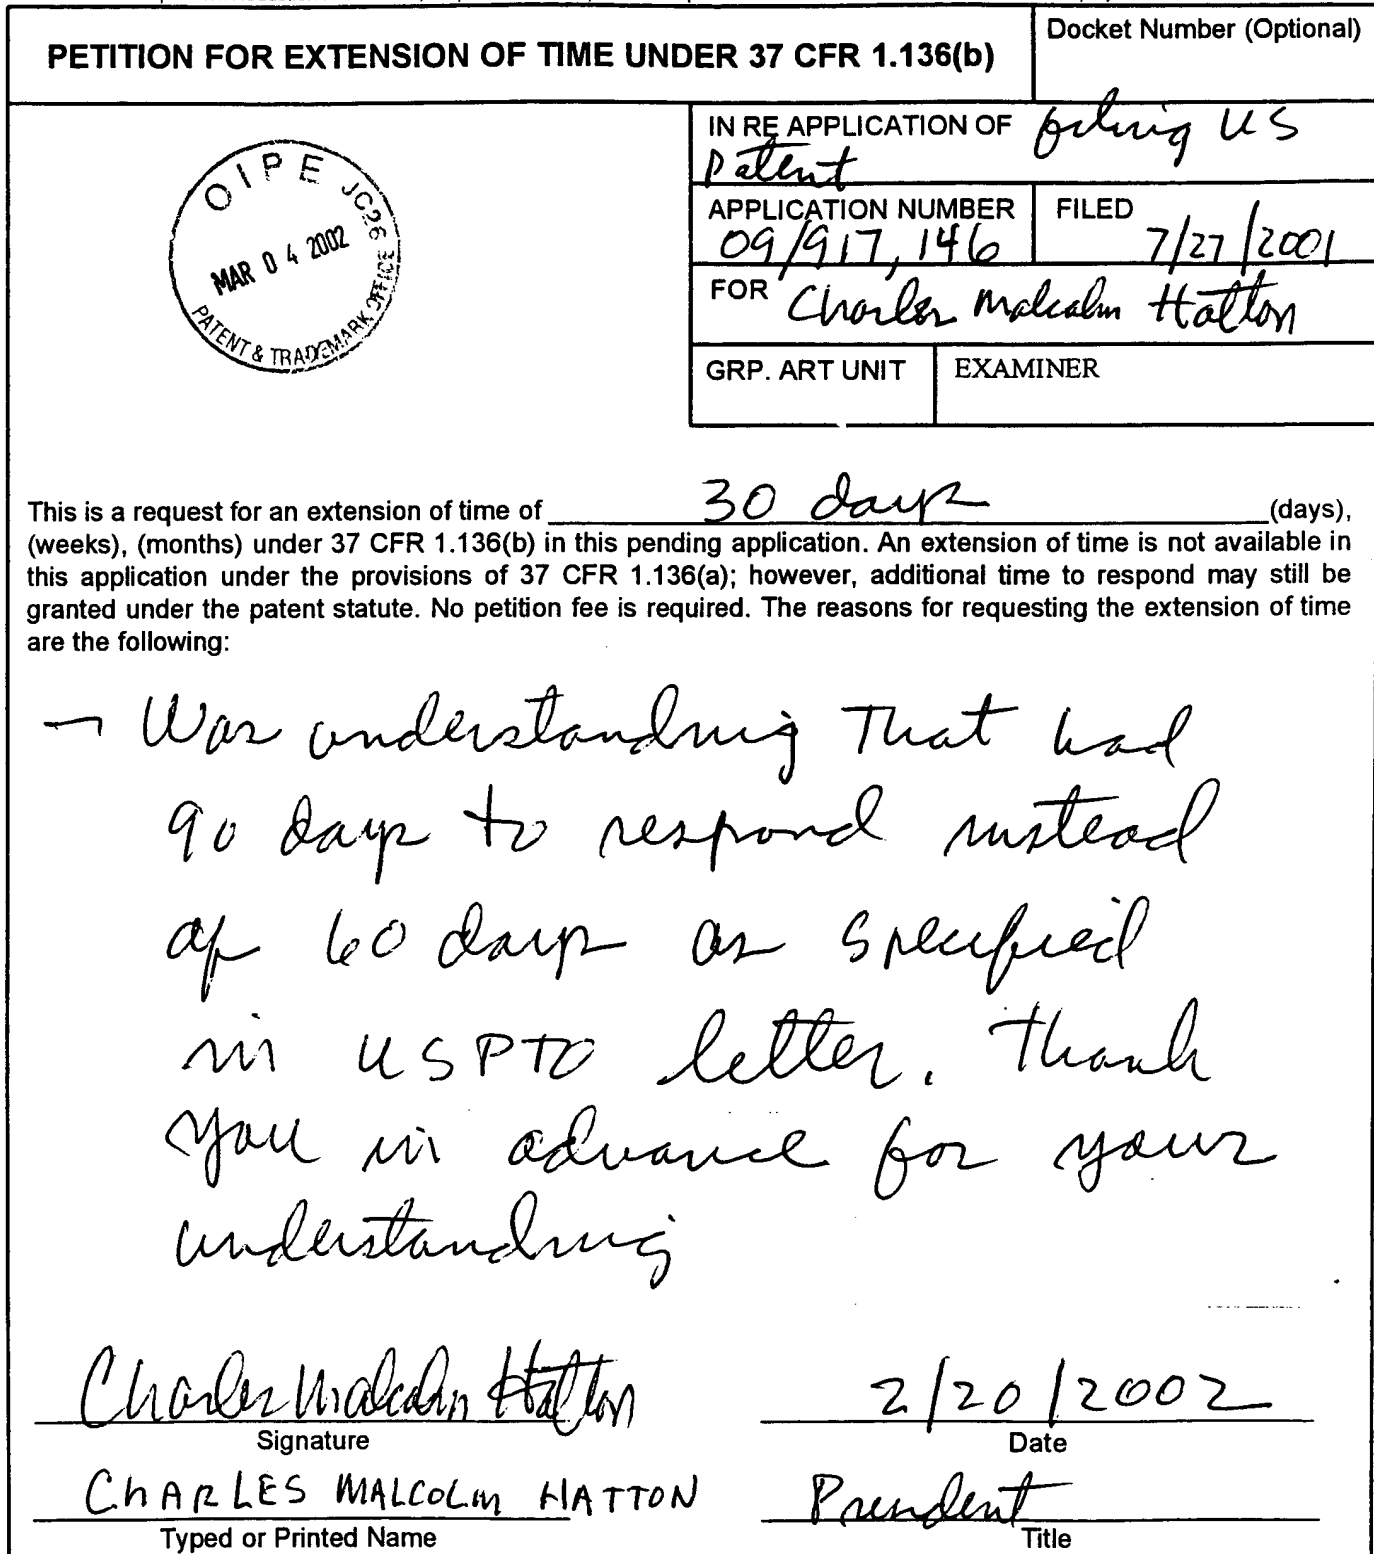 PETITION FOR EXTENSION OF TIME UNDER 37 CFR 1.136(b)
Docket Number (Optional)
OIPE JC26
MAR 04 2002
PATENT & TRADEMARK OFFICE
IN RE APPLICATION OF filing US
Patent
APPLICATION NUMBER
09/917,146
FILED
7/27/2001
FOR Charles Malcolm Hatton
GRP. ART UNIT
EXAMINER
This is a request for an extension of time of 30 days (days),
(weeks), (months) under 37 CFR 1.136(b) in this pending application. An extension of time is not available in
this application under the provisions of 37 CFR 1.136(a); however, additional time to respond may still be
granted under the patent statute. No petition fee is required. The reasons for requesting the extension of time
are the following:
– Was understanding That had
90 days to respond instead
of 60 days as specified
in USPTO letter. Thank
you in advance for your
understanding
Charles Malcolm Hatton
Signature
2/20/2002
Date
CHARLES MALCOLM HATTON
Typed or Printed Name
President
Title